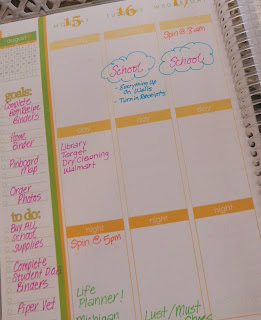 15
16
17
august
Spin @ 8am
School
School
- Everything Up
On Walls
- Turn in Receipts
goals:
Complete
Both Recipe
Binders
Home
Binder
Pinboard
Map
Order
Photos
day
day
day
Library
Target
Dry Cleaning
Walmart
to do:
Buy All
School
Supplies
Complete
Student Data
Binders
Piper Vet
night
night
night
Spin @ 5pm
Life
Planner!
Michigan
Lust/Must